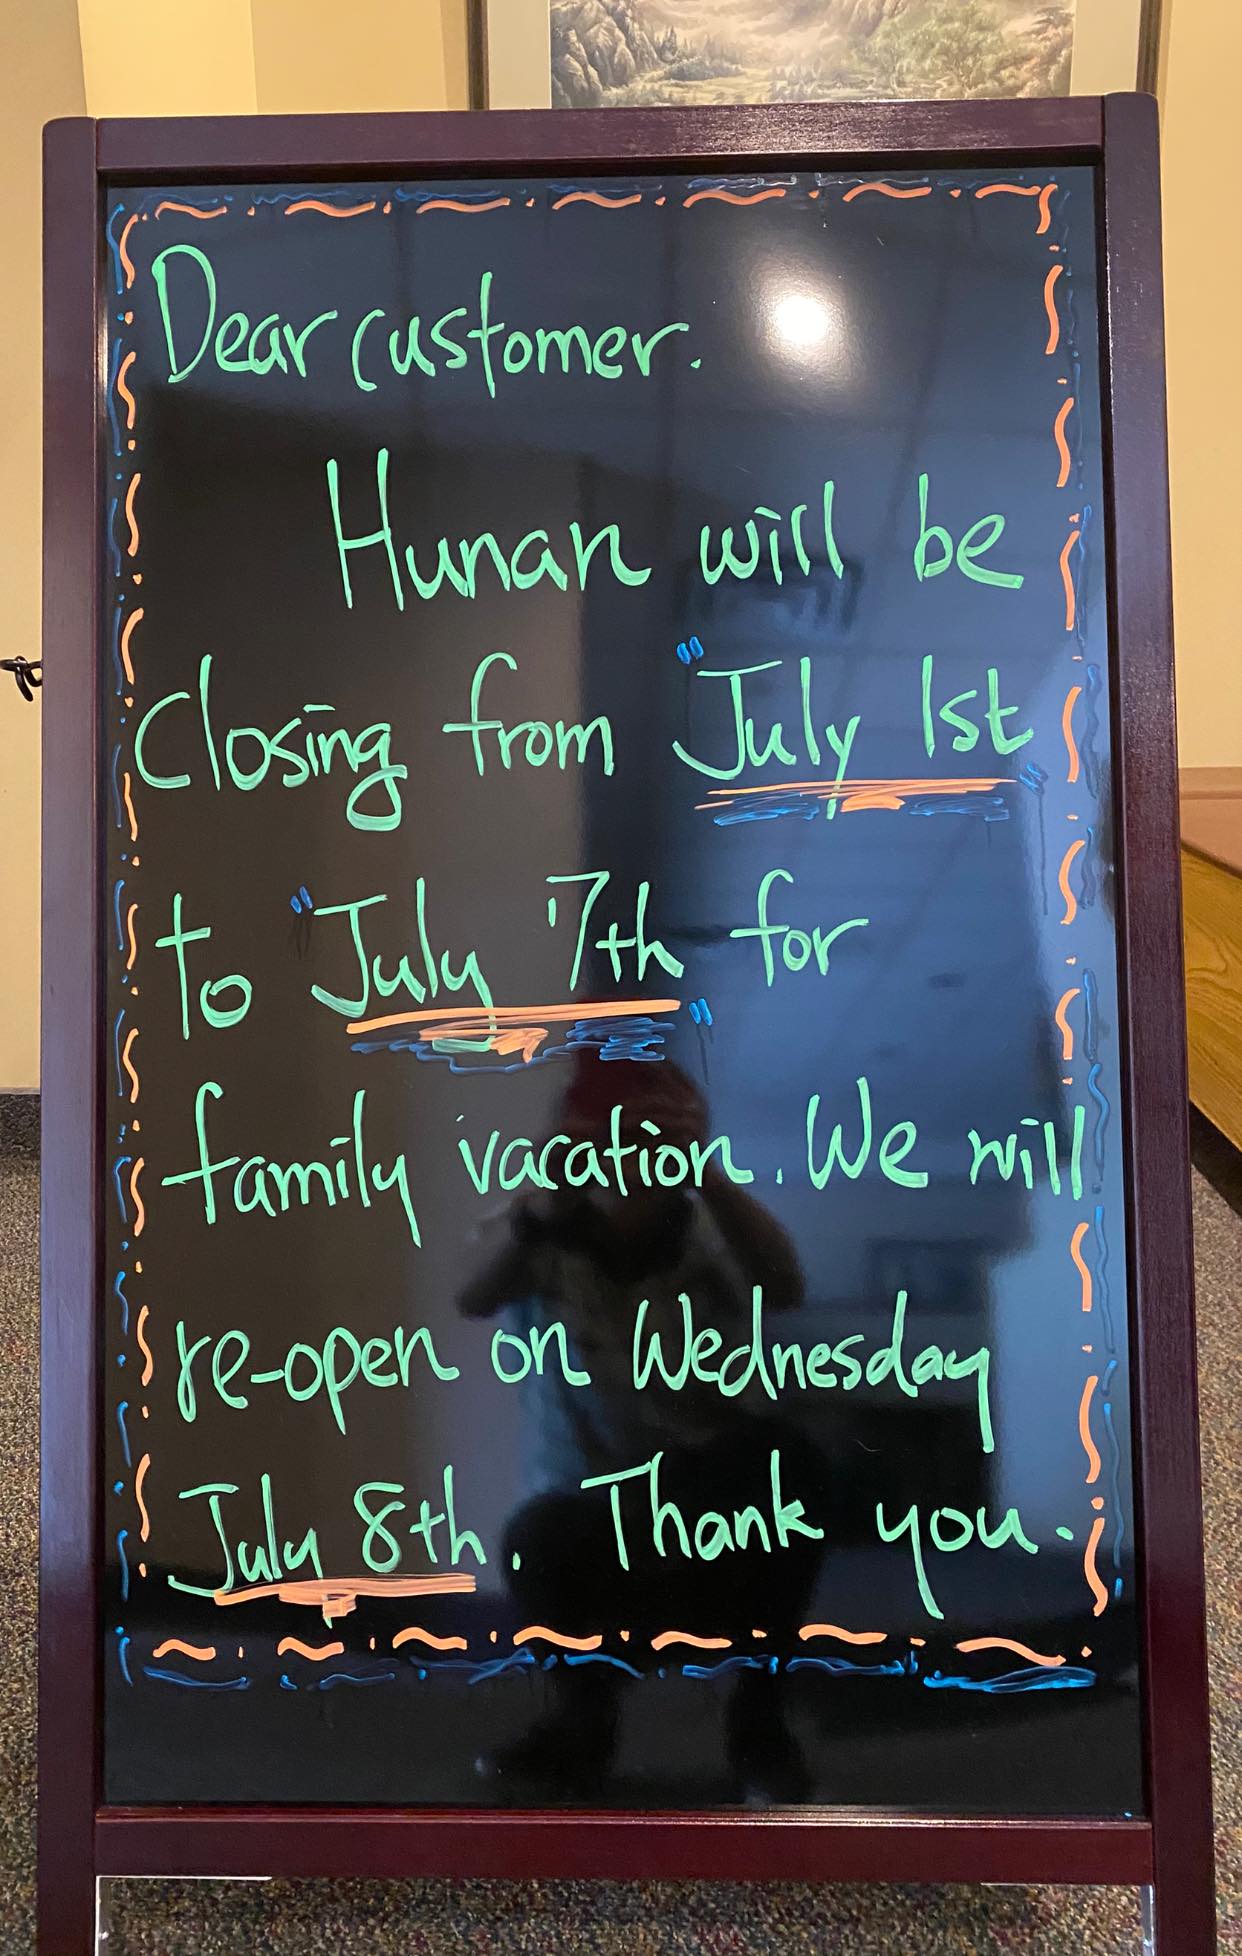 Dear customer.
Hunan will be
closing from "July 1st"
to "July 7th" for
family vacation. We will
re-open on Wednesday
July 8th. Thank you.